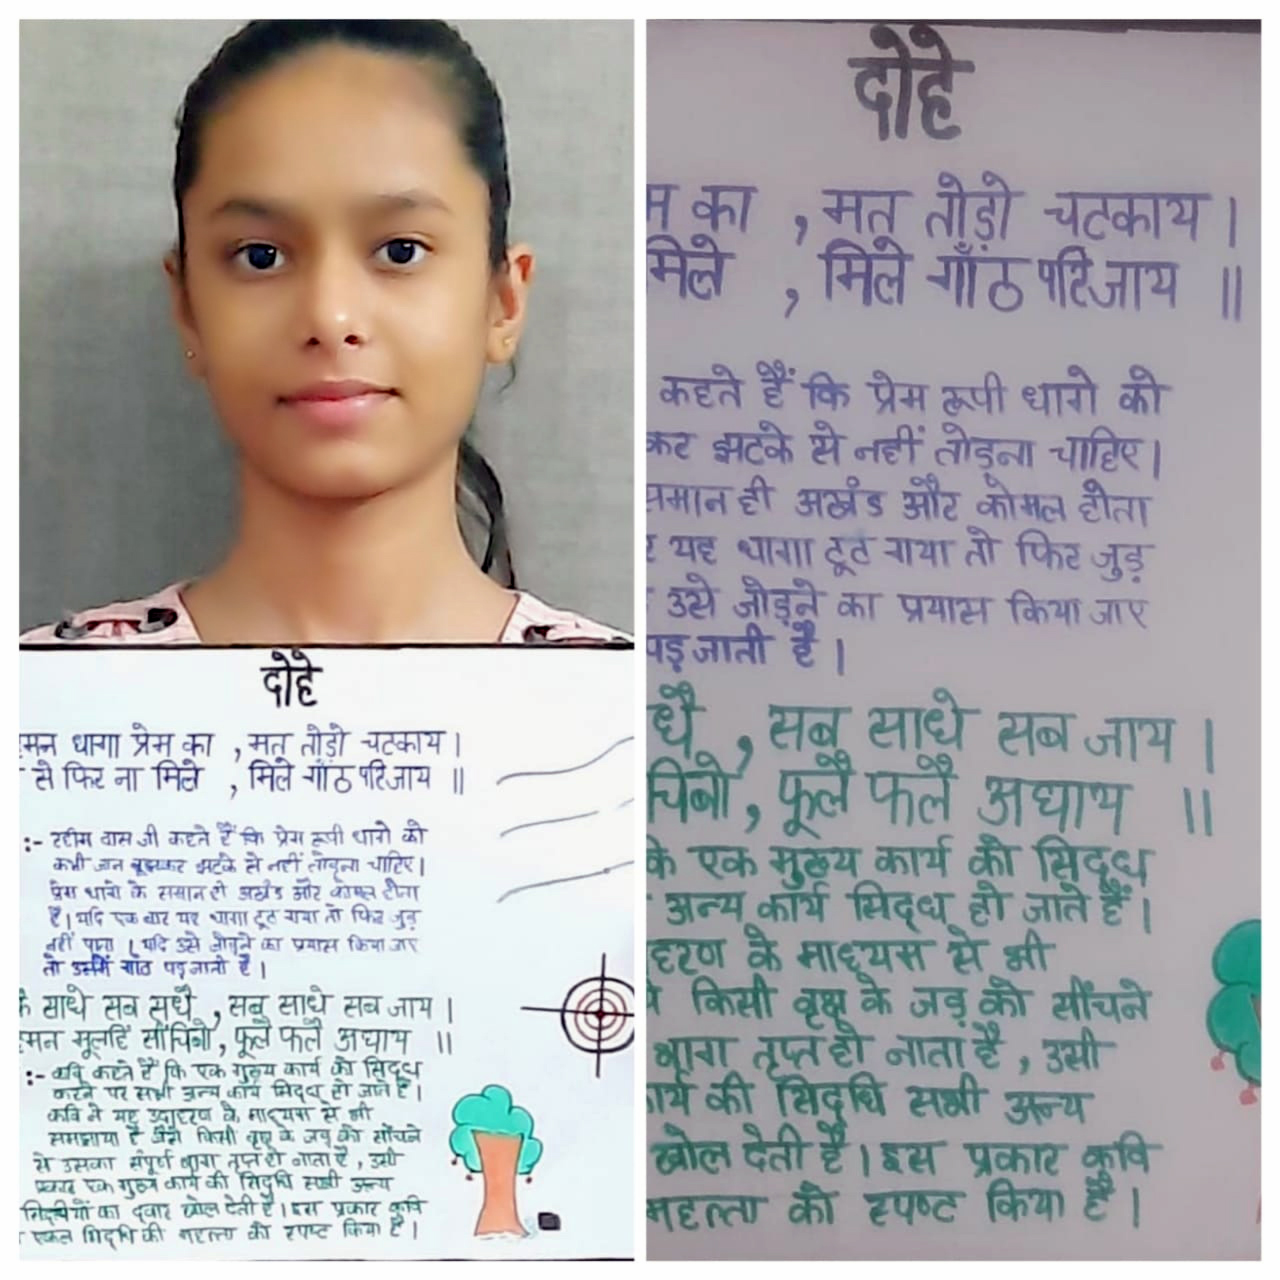 दोहे
मन धागा प्रेम का , मत तोड़ो चटकाय ।
से फिर ना मिले , मिले गाँठ परिजाय ॥
:- रहीम दास जी कहते हैं कि प्रेम रूपी धागे को
कभी जान बूझकर झटके से नहीं तोड़ना चाहिए।
प्रेम धागे के समान ही अखंड और कोमल होता
है। यदि एक बार यह धागा टूट गया तो फिर जुड़
नहीं पाता । यदि उसे जोड़ने का प्रयास किया जाए
तो उसमें गाँठ पड़ जाती है ।
साधे सब सधै , सब साधे सब जाय ।
मन मूलहिं सींचिबो , फूलै फलै अघाय ॥
:- कवि कहते हैं कि एक मुख्य कार्य को सिद्ध
करने पर सभी अन्य कार्य सिद्ध हो जाते हैं।
कवि ने यह उदाहरण के माध्यम से भी
समझाया है जैसे किसी वृक्ष के जड़ को सींचने
से उसका संपूर्ण भाग तृप्त हो जाता है , उसी
प्रकार एक मुख्य कार्य की सिद्धि सभी अन्य
का द्वार खोल देती है। इस प्रकार कवि
सिद्धि की महत्ता को स्पष्ट किया है।
दोहे
म का , मत तोड़ो चटकाय ।
मिले , मिले गाँठ परिजाय ॥
कहते हैं कि प्रेम रूपी धागे को
कर झटके से नहीं तोड़ना चाहिए।
समान ही अखंड और कोमल होता
र यह धागा टूट गया तो फिर जुड़
उसे जोड़ने का प्रयास किया जाए
पड़ जाती है ।
धै , सब साधे सब जाय ।
चिबो , फूलै फलै अघाय ॥
के एक मुख्य कार्य को सिद्ध
अन्य कार्य सिद्ध हो जाते हैं।
हरण के माध्यम से भी
किसी वृक्ष के जड़ को सींचने
भाग तृप्त हो जाता है , उसी
ार्य की सिद्धि सभी अन्य
खोल देती है। इस प्रकार कवि
महत्ता को स्पष्ट किया है।